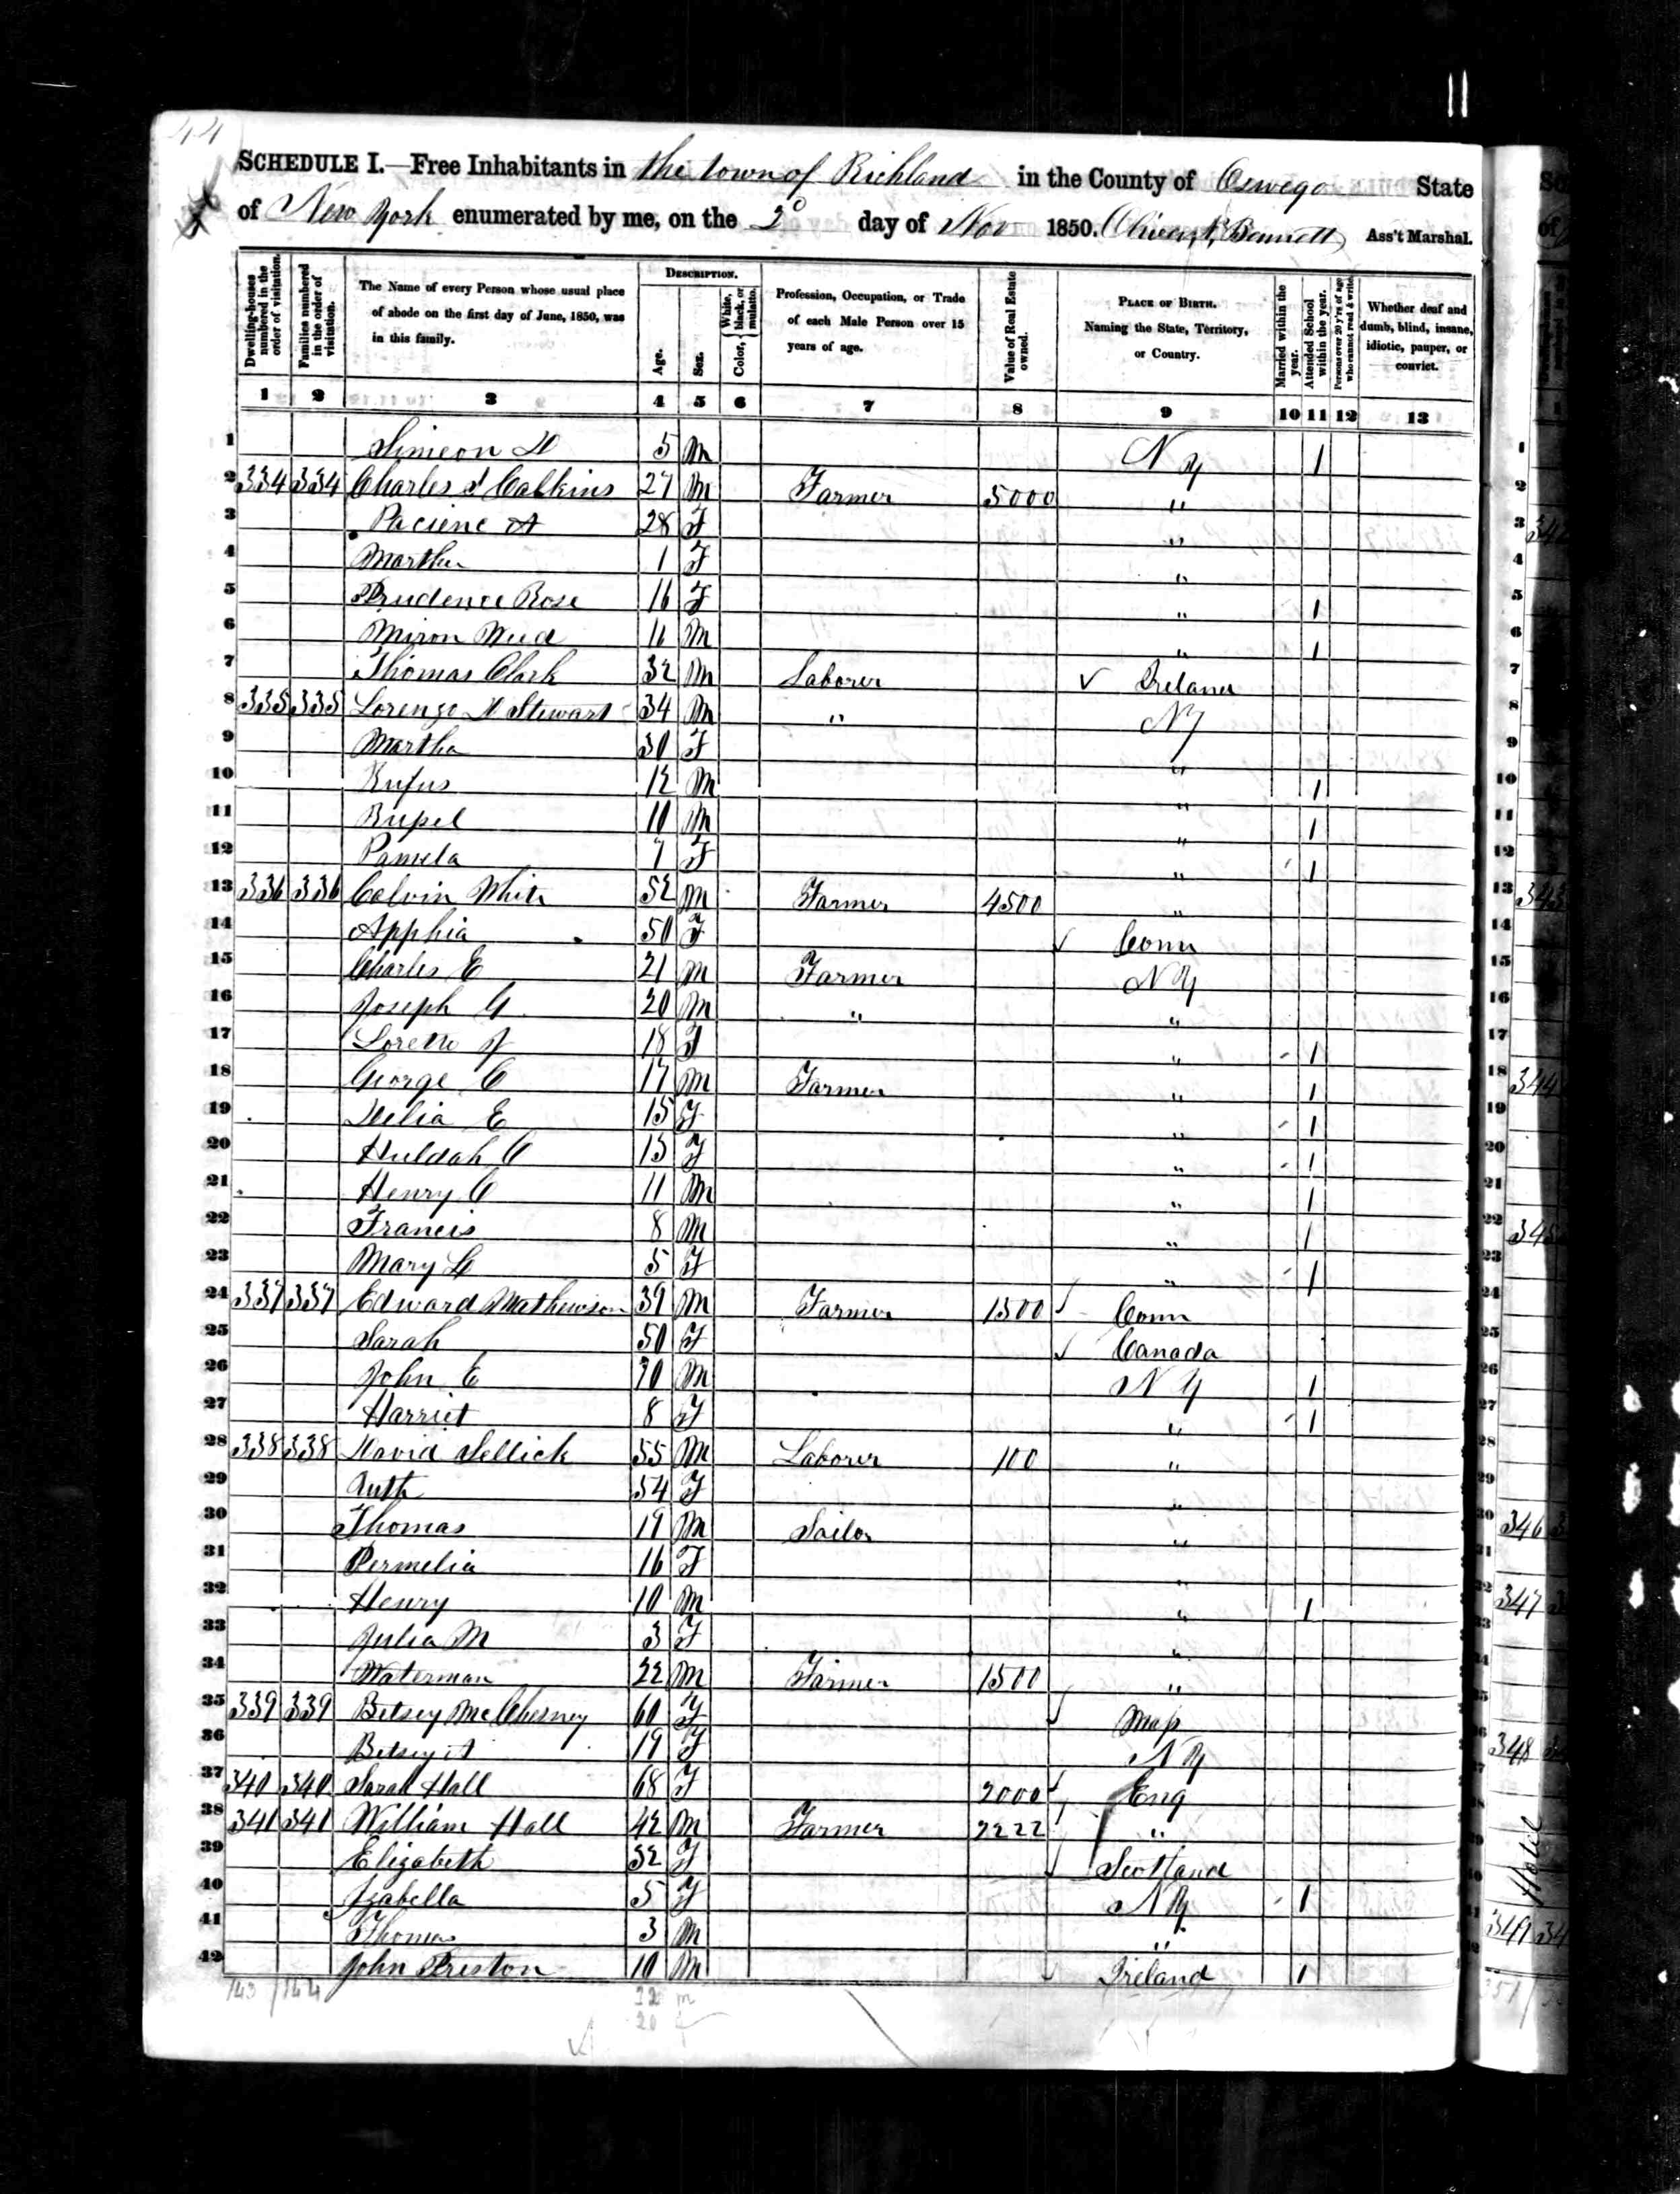 44
SCHEDULE I.—Free Inhabitants in the town of Richland in the County of Oswego State
of New York enumerated by me, on the 2d day of Nov 1850. Bennett Ass't Marshal.
Dwelling-houses numbered in the order of visitation. Families numbered in the order of visitation. The Name of every Person whose usual place of abode on the first day of June, 1850, was in this family. DESCRIPTION. Age. Sex. Color, { White, black, or mulatto. Profession, Occupation, or Trade of each Male Person over 15 years of age. Value of Real Estate owned. PLACE OF BIRTH. Naming the State, Territory, or Country. Married within the year. Attended School within the year. Persons over 20 y'rs of age who cannot read & write. Whether deaf and dumb, blind, insane, idiotic, pauper, or convict.
1 2 3 4 5 6 7 8 9 10 11 12 13
1 Simeon D 5 M N Y 1
2 334 334 Charles S Calkins 27 M Farmer 5000 "
3 Pacienc A 28 F "
4 Martha 1 F "
5 Prudence Rose 16 F " 1
6 Miron Weed 16 M " 1
7 Thomas Clark 32 M Laborer ✓ Ireland
8 335 335 Lorenzo N Stewart 34 M " N Y
9 Martha 30 F "
10 Rufus 12 M " 1
11 Russel 10 M " 1
12 Pamela 7 F " 1
13 336 336 Calvin White 52 M Farmer 4500 "
14 Apphia 50 F ✓ Conn
15 Charles E 21 M Farmer N Y
16 Joseph G 20 M " "
17 Lorette J 18 F " 1
18 George C 17 M Farmer " 1
19 Delia E 15 F " 1
20 Huldah C 13 F " 1
21 Henry C 11 M " 1
22 Francis 8 M " 1
23 Mary L 5 F " 1
24 337 337 Edward Mathewson 39 M Farmer 1500 ✓ Conn
25 Sarah 50 F ✓ Canada
26 John E 20 M N Y 1
27 Harriet 8 F " 1
28 338 338 David Sellick 55 M Laborer 100 "
29 Ruth 54 F "
30 Thomas 19 M Sailor "
31 Permelia 16 F "
32 Henry 10 M " 1
33 Julia M 3 F "
34 Waterman 22 M Farmer 1500 "
35 339 339 Betsey McChesney 60 F ✓ Mass
36 Betsey A 19 F N Y
37 340 340 Sarah Hall 68 F 2000 ✓ Eng
38 341 341 William Hall 42 M Farmer 2222 "
39 Elizabeth 32 F ✓ Scotland
40 Izabella 5 F N Y 1
41 Thomas 3 M "
42 John Preston 10 M ✓ Ireland 1
22 m
20 f